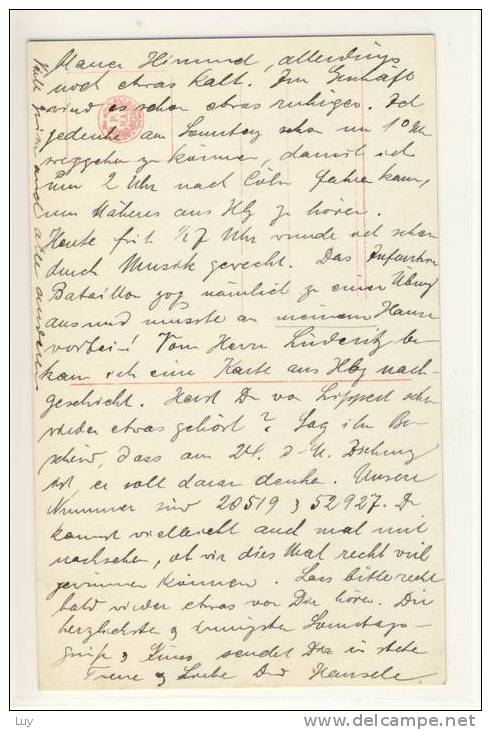 blauer Himmel, allerdings
noch etwas kalt. Im Geschäft
wird es schon etwas ruhiger. Ich
gedenke am Sonntag schon um 1 Uhr
weggehn zu können, damit ich
um 2 Uhr nach Cöln fahren kann,
um Näheres aus Hbg zu hören.
Heute früh ½7 Uhr wurde ich schon
durch Musik geweckt. Das Infanterie
Bataillon zog nämlich zu einer Übung
aus und musste an meinem Hause
vorbei! Vom Herrn Lüderitz be-
kam ich eine Karte aus Hbg nach-
geschickt. Hast Du von Lippert schon
wieder etwas gehört? Sag ihm Be-
scheid, dass am 24. d. M. Ziehung
ist, er soll daran denken. Unsere
Nummer sind 20519 & 52927. Du
kannst vielleicht auch mal mit
nachsehen, ob wir dies Mal recht viel
gewinnen können. Lass bitte recht
bald wieder etwas von Dir hören. Die
herzlichsten & innigsten Sonntags-
grüße & Küsse sendet Dir in steter
Treue & Liebe Dein Hansele
grüsse auch alle anderen
Luy
www.delcampe.net